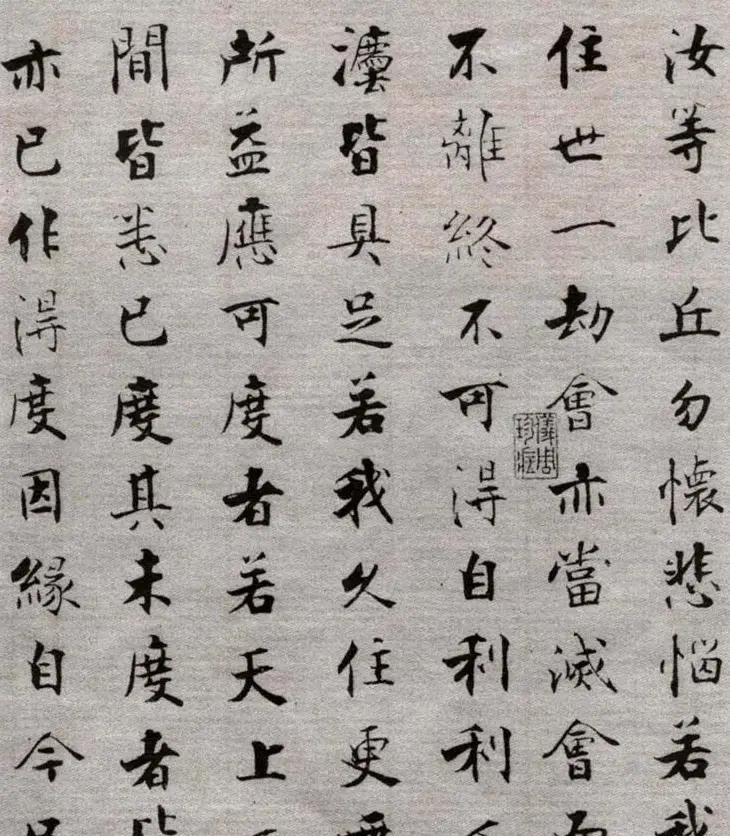 汝等比丘勿懷悲惱若我
住世一劫會亦當滅會而
不離終不可得自利利
灋皆具足若我久住更無
所益應可度者若天上
間皆悉已度其未度者皆
亦已作得度因緣自今
儀周珍藏